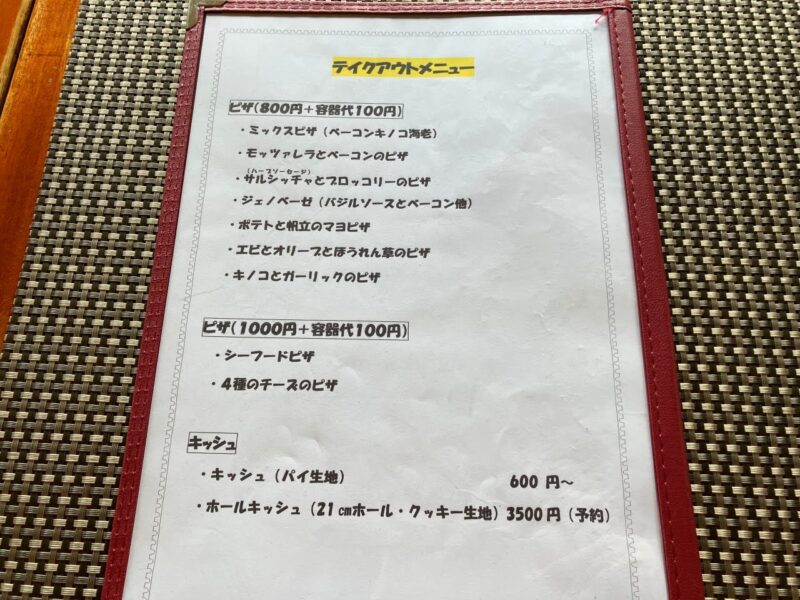 テイクアウトメニュー
ピザ(800円+容器代100円)
・ミックスピザ（ベーコンキノコ海老）
・モッツァレラとベーコンのピザ
(ハーブソーセージ)
・サルシッチャとブロッコリーのピザ
・ジェノベーゼ（バジルソースとベーコン他）
・ポテトと帆立のマヨピザ
・エビとオリーブとほうれん草のピザ
・キノコとガーリックのピザ
ピザ(1000円+容器代100円)
・シーフードピザ
・4種のチーズのピザ
キッシュ
・キッシュ（パイ生地） 600 円〜
・ホールキッシュ（21 ㎝ホール・クッキー生地）3500 円（予約）